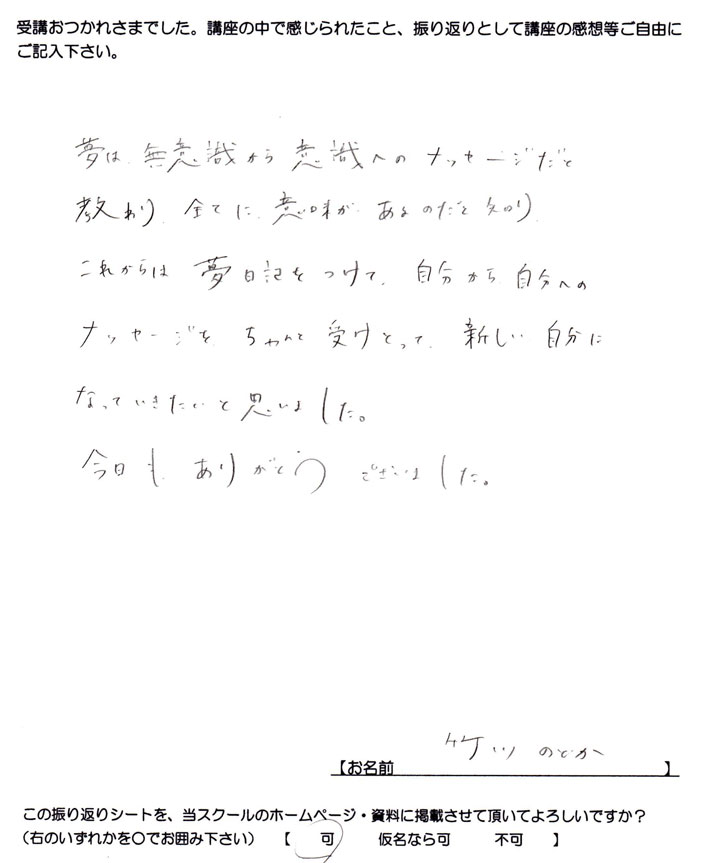 受講おつかれさまでした。講座の中で感じられたこと、振り返りとして講座の感想等ご自由に
ご記入下さい。
夢は、無意識から意識へのメッセージだと
教わり、全てに、意味が、あるのだと知り、
これからは夢日記をつけて、自分から、自分への
メッセージを、ちゃんと受けとって、新しい自分に
なっていきたいと思いました。
今日も、ありがとうございました。
【お名前 竹川 のどか 】
この振り返りシートを、当スクールのホームページ・資料に掲載させて頂いてよろしいですか?
(右のいずれかを〇でお囲み下さい) 【 可 仮名なら可 不可 】